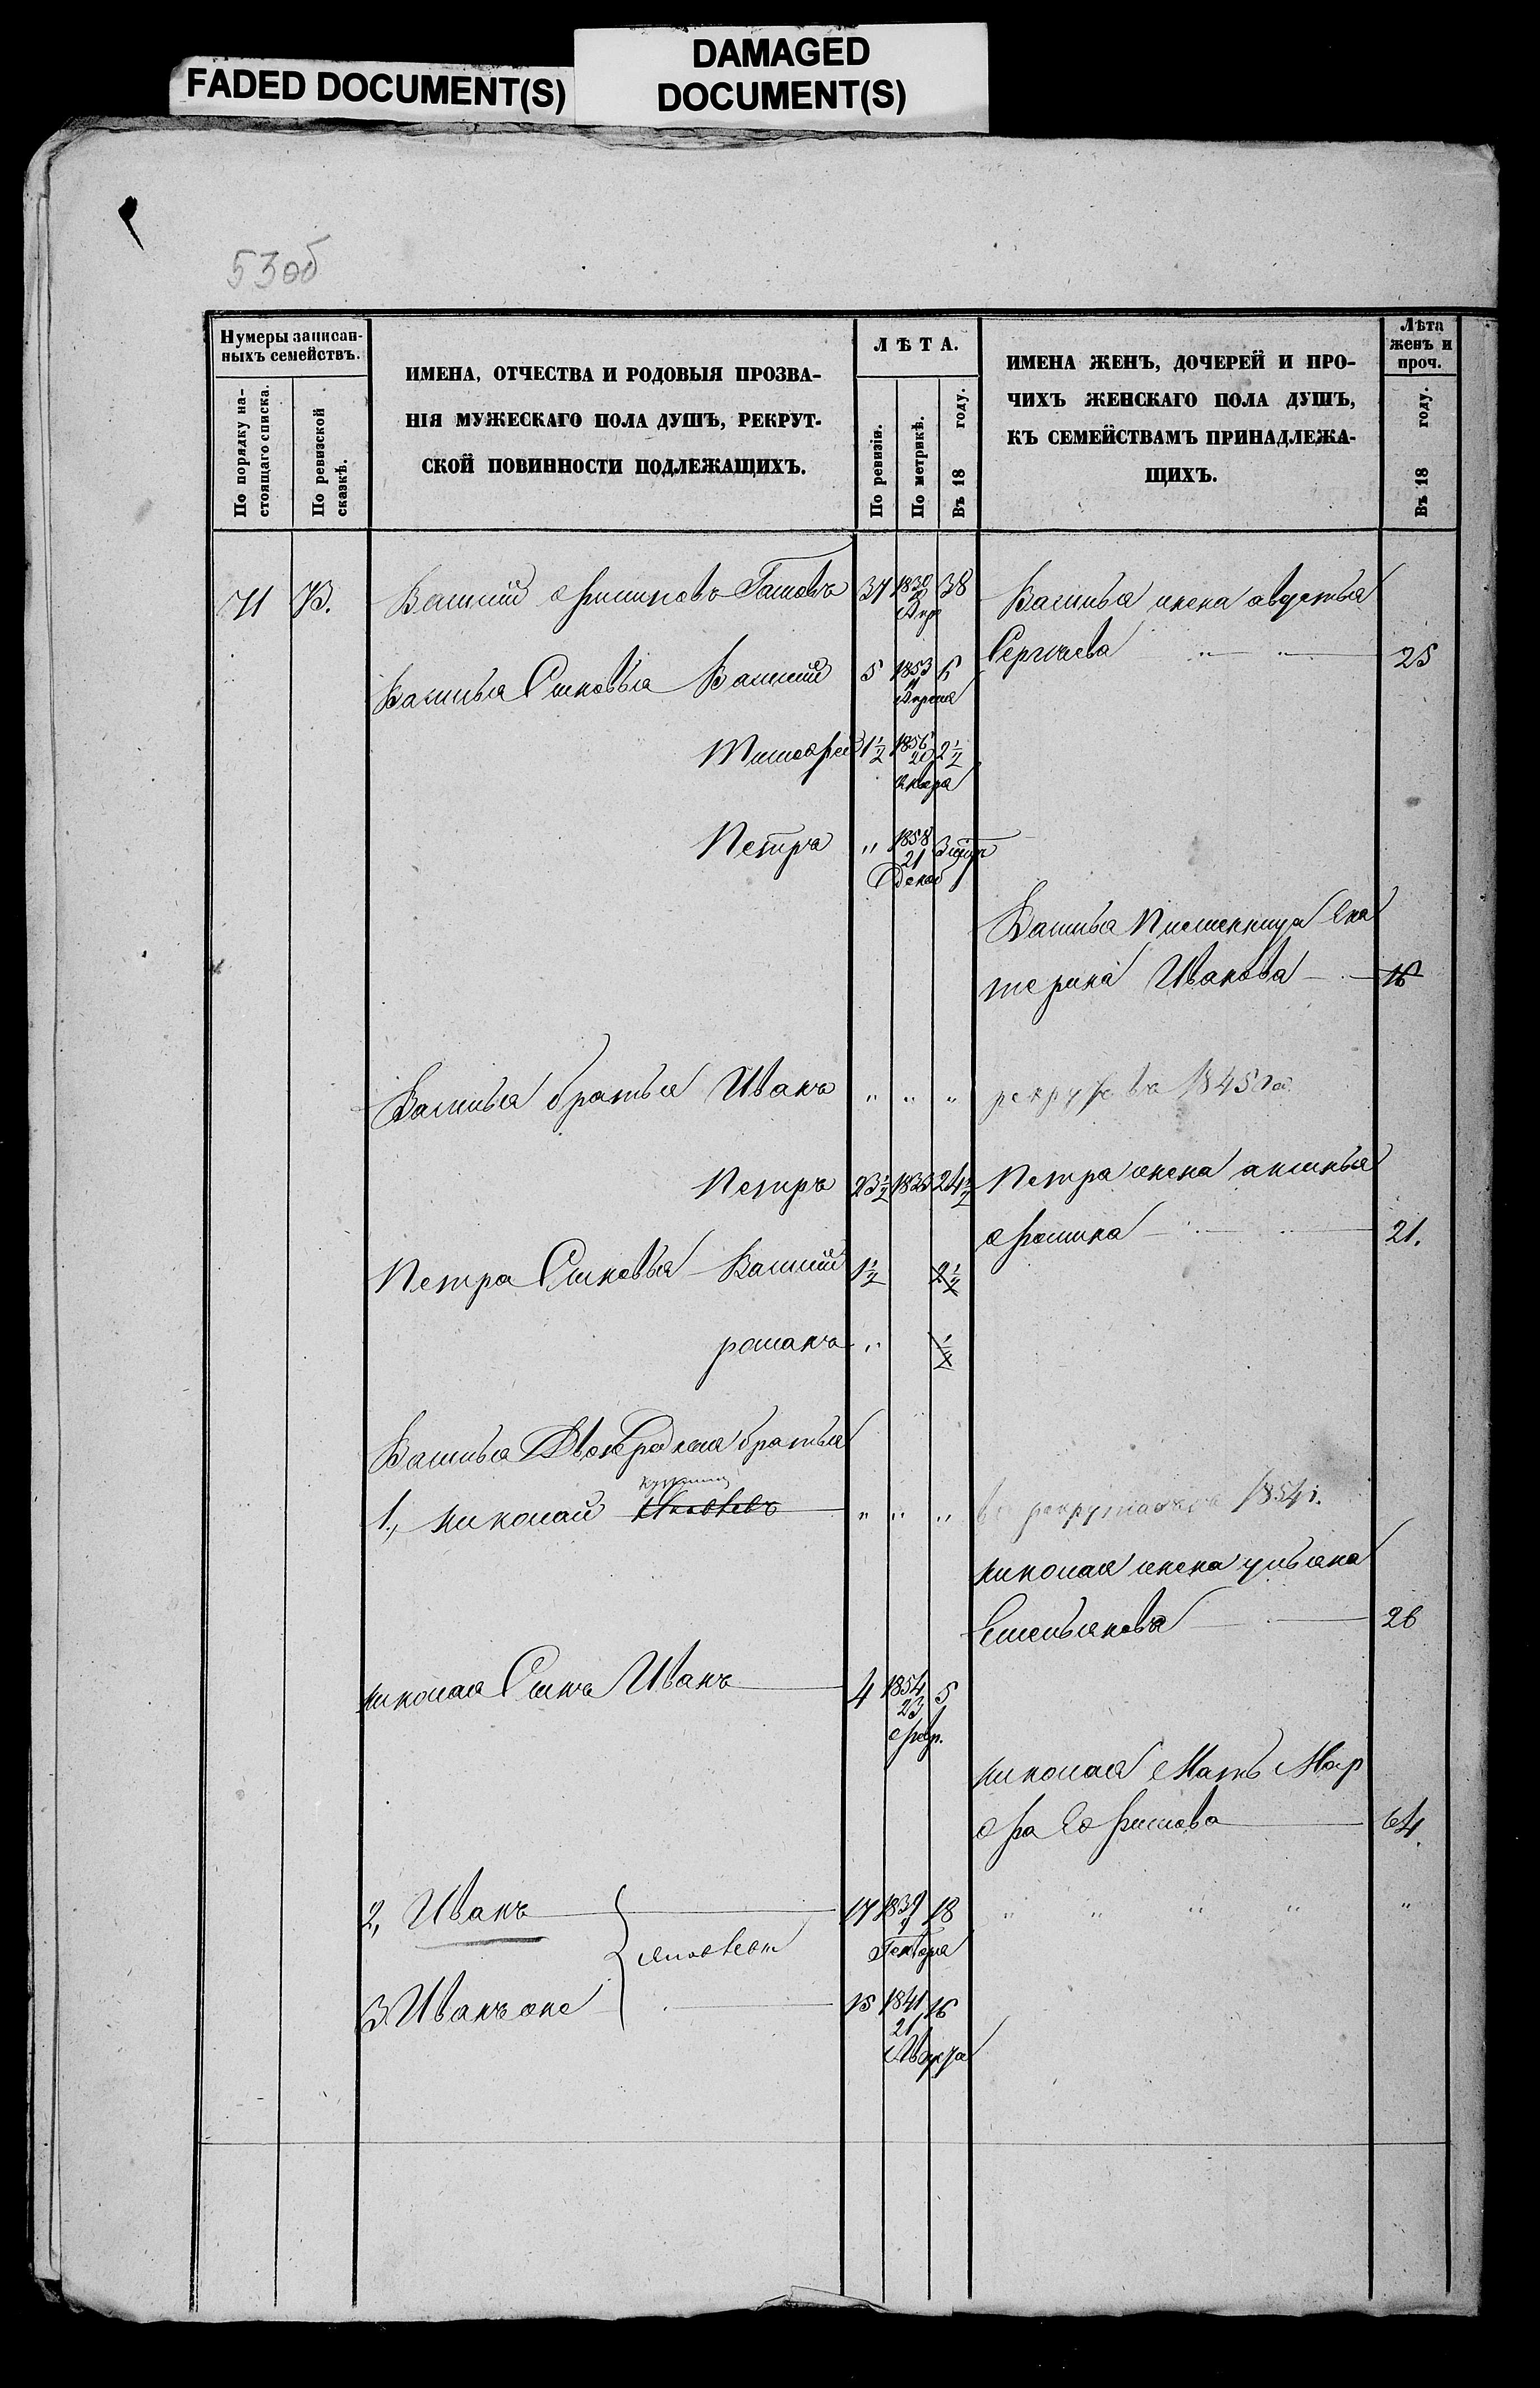 FADED DOCUMENT(S)
DAMAGED
DOCUMENT(S)
53об
Нумеры записан-
ныхъ семействъ.
По порядку на-
стоящаго списка.
По ревизской
сказкѣ.
ИМЕНА, ОТЧЕСТВА И РОДОВЫЯ ПРОЗВА-
НІЯ МУЖЕСКАГО ПОЛА ДУШЪ, РЕКРУТ-
СКОЙ ПОВИННОСТИ ПОДЛЕЖАЩИХЪ.
ЛѢТА.
По ревизіи.
По метрикѣ.
Въ 18 году.
ИМЕНА ЖЕНЪ, ДОЧЕРЕЙ И ПРО-
ЧИХЪ ЖЕНСКАГО ПОЛА ДУШЪ,
КЪ СЕМЕЙСТВАМЪ ПРИНАДЛЕЖА-
ЩИХЪ.
Лѣта
женъ и
проч.
Въ 18 году.
71 Василий 37 38 Василья жена авдотья
Сергѣева 25
Василья Сыновья Василий 5 1853 6
Апреля
Тимофей 1½ 1856 2½
20
Петръ " 1858
21
Декаб
Василья Племенница Ека
терина Иванова 16
Василья братья Иванъ " " " рекрутъ 1845
Петръ 23½ 1833 24½ Петра жена аксинья
фомина 21.
Петра Сыновья Василий 1½ 2½
романъ " ½
Василья Двоюродныя братья
1., николай Яковлевъ " " " въ рекрутахъ 1854г.
николая жена ульяна
Емельянова 26
николая Сынъ Иванъ 4 1854 5
23
февр.
николая Мать Мар
фа Ефимова 64.
2, Иванъ 17 1839 18 " " " " "
9
Генваря
Яковлевы
3. Иванъ оне 15 1841 16
21